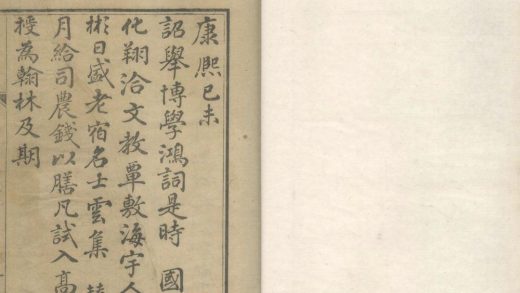 康熙己未
詔舉博學鴻詞是時　國
化翔洽文教覃敷海宇人
彬日盛老宿名士雲集
月給司農錢以膳凡試入高
授為翰林及期